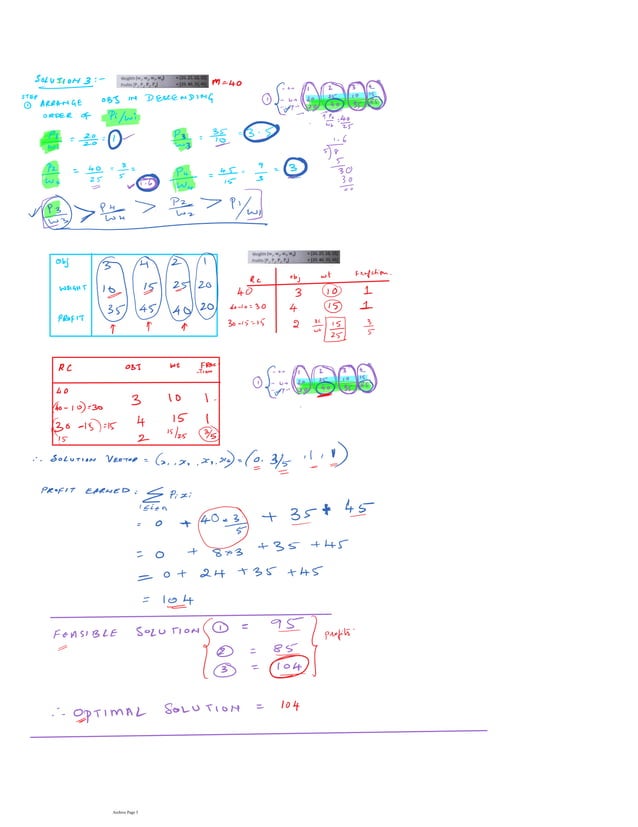 SOLUTION 3:-
Weights (w₁, w₂, w₃, w₄) = (20, 25, 10, 15)
Profits (P₁, P₂, P₃, P₄) = (20, 40, 35, 45)
M=40
STEP
① ARRANGE OBJ IN DECENDING
ORDER OF Pi/wi
P1/w1 = 20/20 = 1
P3/w3 = 35/10 = 3.5
P2/w2 = 40/25 = 8/5 = 1.6
P4/w4 = 45/15 = 9/3 = 3
P3/w3 > P4/w4 > P2/w2 > P1/w1
1.6
5)8
5
30
30
OBJ 3 4 2 1
WEIGHT 10 15 25 20
PROFIT 35 45 40 20
Weights (w₁, w₂, w₃, w₄) = (20, 25, 10, 15)
Profits (P₁, P₂, P₃, P₄) = (20, 40, 35, 45)
RC obj wt fraction
40 3 10 1
40-10=30 4 15 1
30-15=15 2 15/25 3/5
RC OBJ Wt FRACTION
40
(40-10)=30 3 10 1
(30-15)=15 4 15 1
15 2 15/25 3/5
∴ SOLUTION VECTOR = (x1, x2, x3, x4) = (0, 3/5, 1, 1)
PROFIT EARNED: Σ Pixi
1≤i≤n
= 0 + 40*3/5 + 35 + 45
= 0 + 8*3 +35 +45
= 0+ 24 +35 +45
= 104
FEASIBLE SOLUTION ① = 95
② = 85
③ = 104
profits
∴ OPTIMAL SOLUTION = 104
Archive Page 3